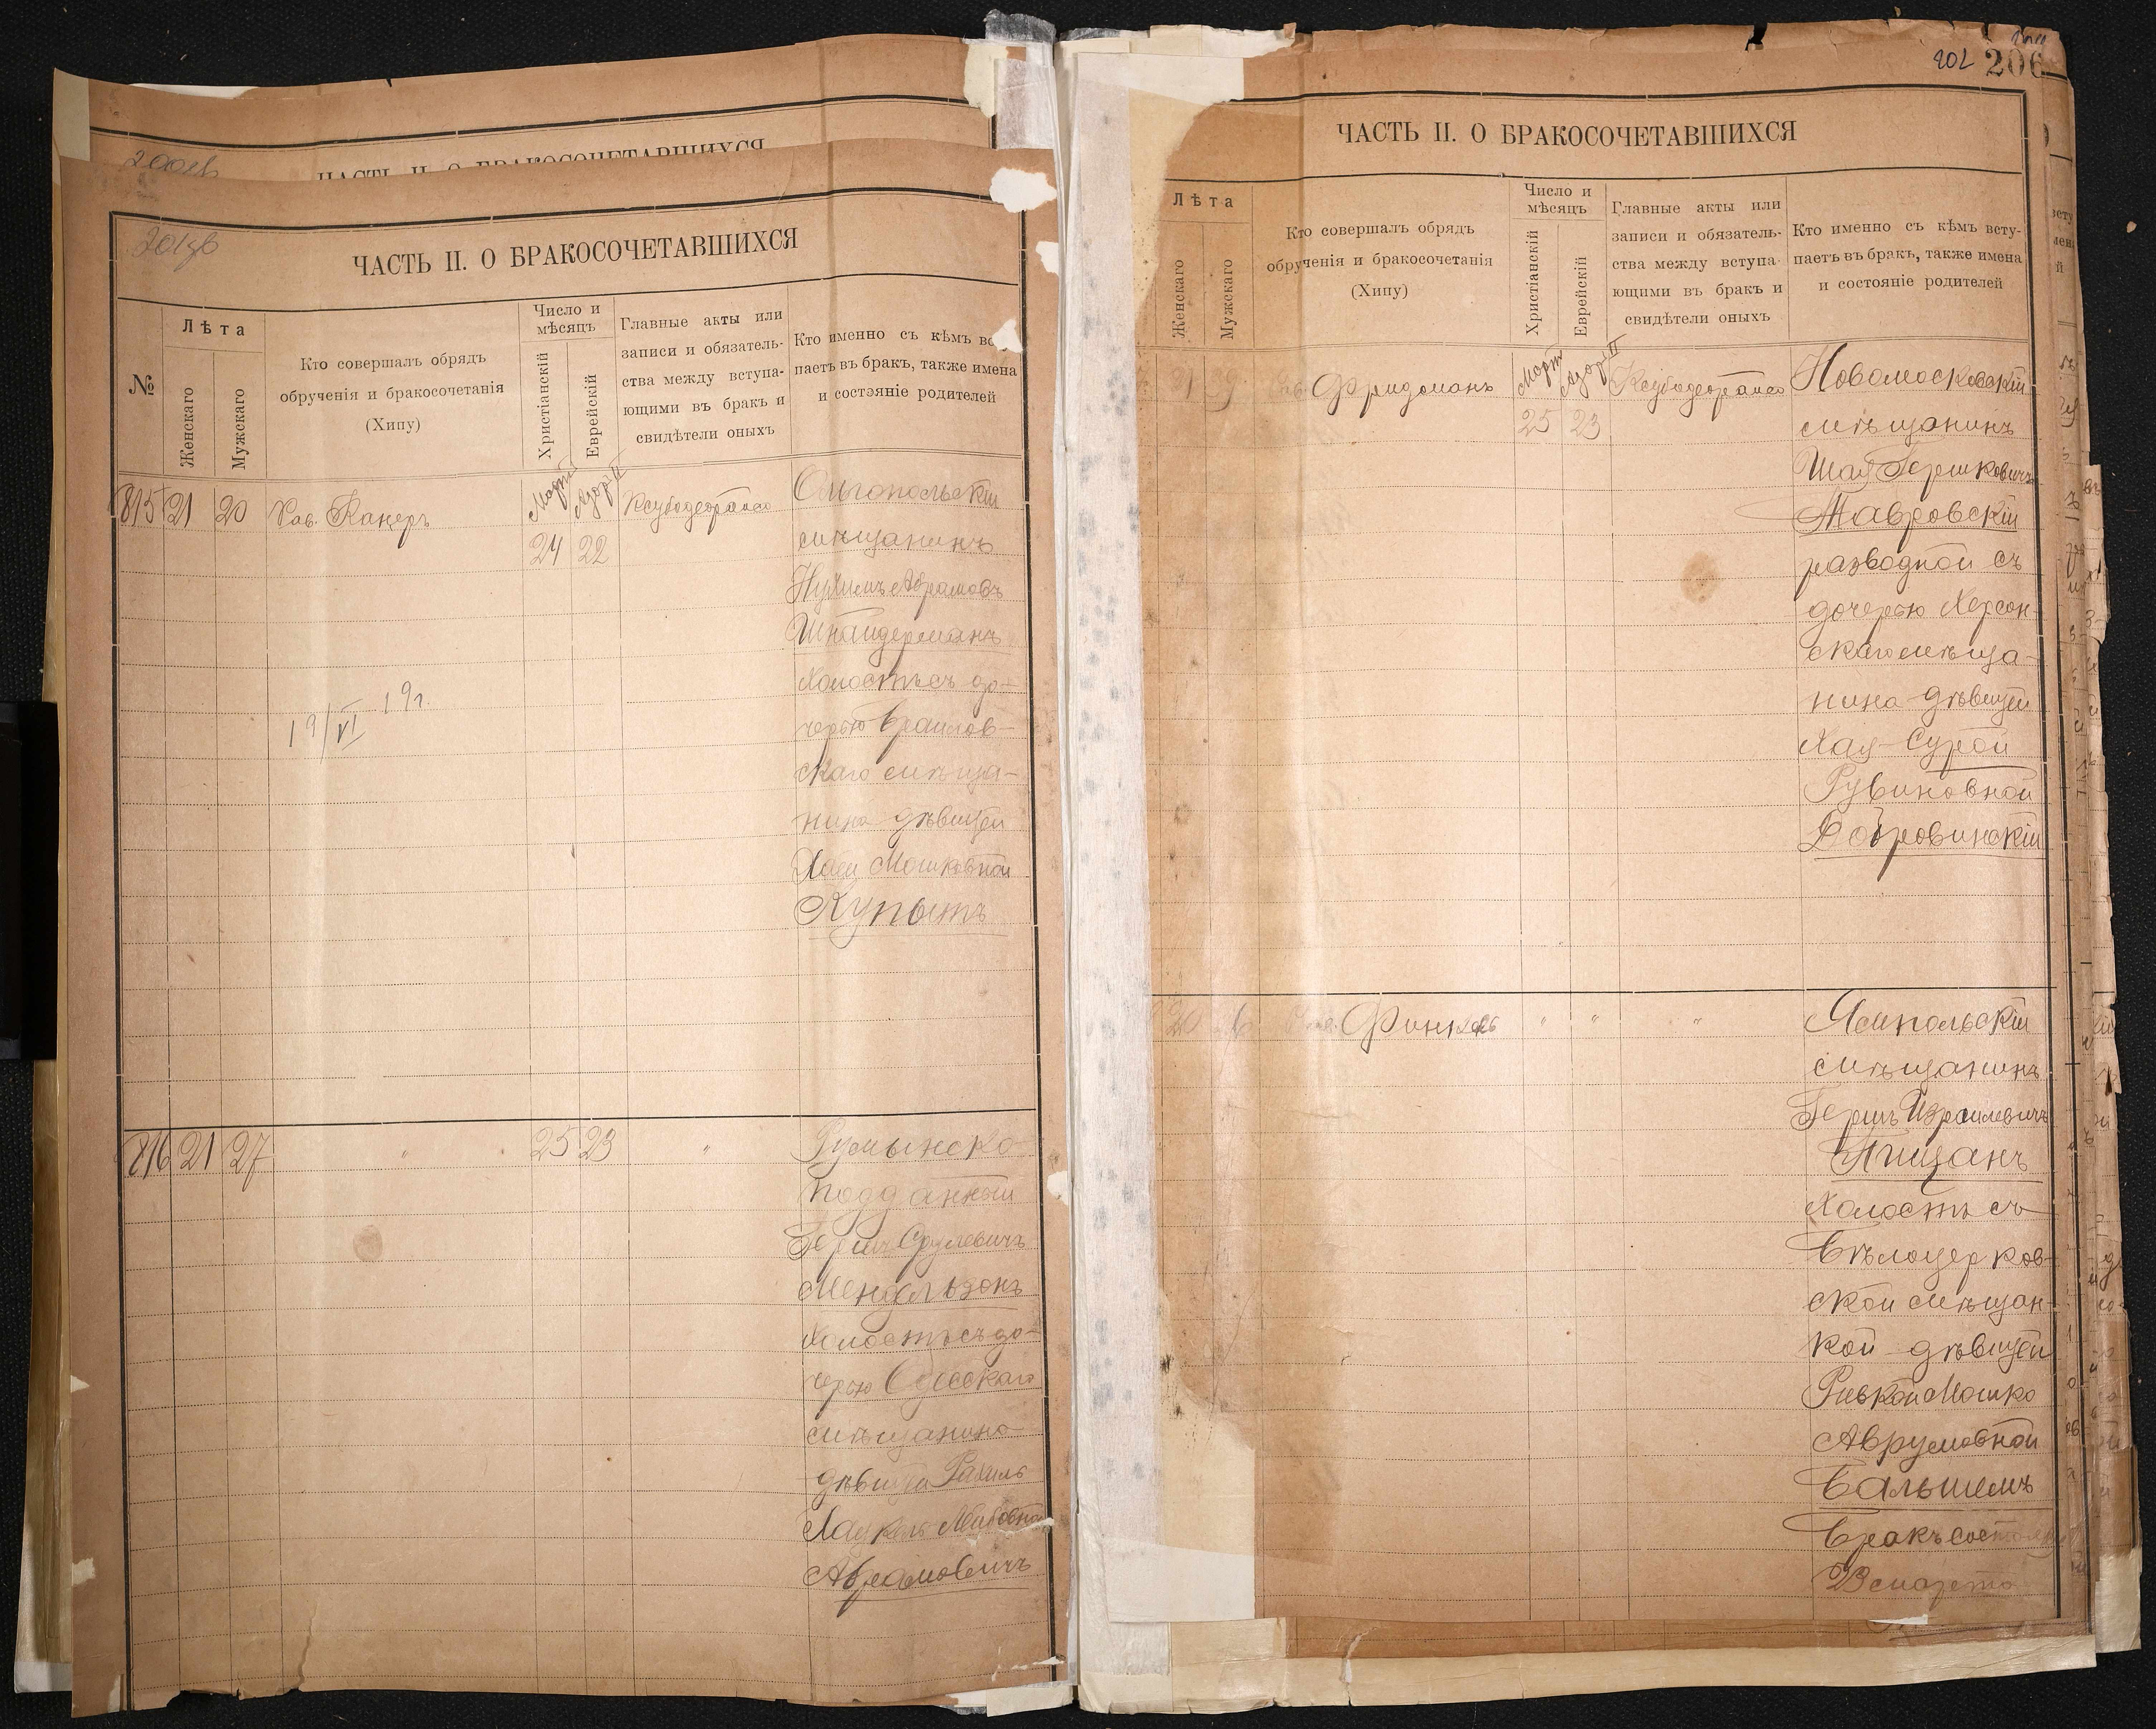 ЧАСТЬ II. О БРАКОСОЧЕТАВШИХСЯ
201об
ЧАСТЬ II. О БРАКОСОЧЕТАВШИХСЯ
№
Лѣта
Женскаго
Мужскаго
Кто совершалъ обрядъ
обрученія и бракосочетанія
(Хипу)
Число и
мѣсяцъ
Христіанскій
Еврейскій
Главные акты или
записи и обязатель-
ства между вступа-
ющими въ бракъ и
свидѣтели оныхъ
Кто именно съ кѣмъ всту-
паетъ въ бракъ, также имена
и состояніе родителей
815 21 20 Рав. Канеръ
Мартъ Адоръ II
24 22
Ольгопольскій
мѣщанинъ
Нухимъ Абрамовъ
Шнайдерманъ
холостъ съ до-
черью Браилов-
скаго мѣща-
нина дѣвицей
Хаей Мошковной
Купытъ
19/VI 19г.
816 21 27 " 25 23 "
Румынско
подданный
Гершъ Срулевичъ
Мендельзонъ
холостъ съ до-
черью Одесскаго
мѣщанина
дѣвица Рахиль
Лейбовна
Абрамовичъ
202 206
ЧАСТЬ II. О БРАКОСОЧЕТАВШИХСЯ
Лѣта
Женскаго
Мужскаго
Кто совершалъ обрядъ
обрученія и бракосочетанія
(Хипу)
Число и
мѣсяцъ
Христіанскій
Еврейскій
Главные акты или
записи и обязатель-
ства между вступа-
ющими въ бракъ и
свидѣтели оныхъ
Кто именно съ кѣмъ всту-
паетъ въ бракъ, также имена
и состояніе родителей
21 Фридманъ
Мартъ Адоръ II
25 23
Новомосковскій
мѣщанинъ
Шая Гершковичъ
Мавровскій
разводной съ
дочерью Херсон-
скаго мѣща-
нина дѣвицей
Хая-Сурой
Рувиновной
Добровинскій
20 Финкель " " "
Ямпольскій
мѣщанинъ
Гершъ Израилевичъ
Пищанъ
холостъ съ
Бѣлоцерков-
ской мѣщан-
кой дѣвицей
Ривкой Мошко
Аврумовной
Бальшемъ
Бракъ состоялся
23 марта